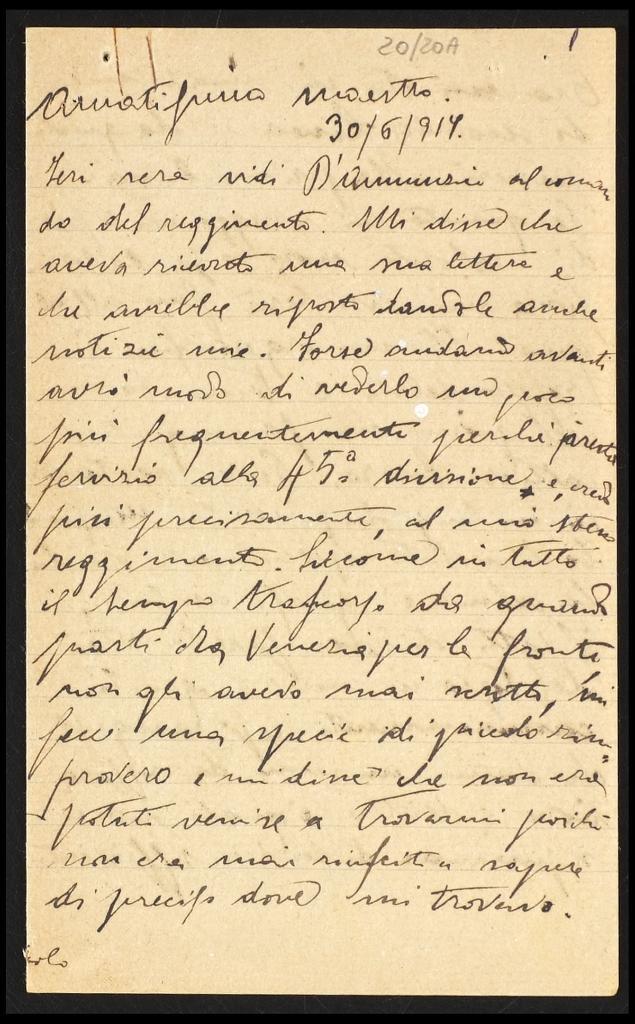 20/20A
Amatissimo maestro.
30/6/917.
Ieri sera vidi D'Annunzio al coman
do del reggimento. Mi disse che
aveva ricevuto una sua lettera e
che avrebbe risposto dandole anche
notizie mie. Forse andando avanti
avrò modo di vederlo un poco
più frequentemente perché presta
servizio alla 45ª divisione e, credo
più precisamente, al mio stesso
reggimento. Siccome in tutto
il tempo trascorso da quando
partì da Venezia per la fronte
non gli avevo mai scritto, mi
fece una specie di piccolo rim=
provero e mi disse che non era
potuto venire a trovarmi poiché
non era mai riuscito a sapere
di preciso dove mi trovavo.